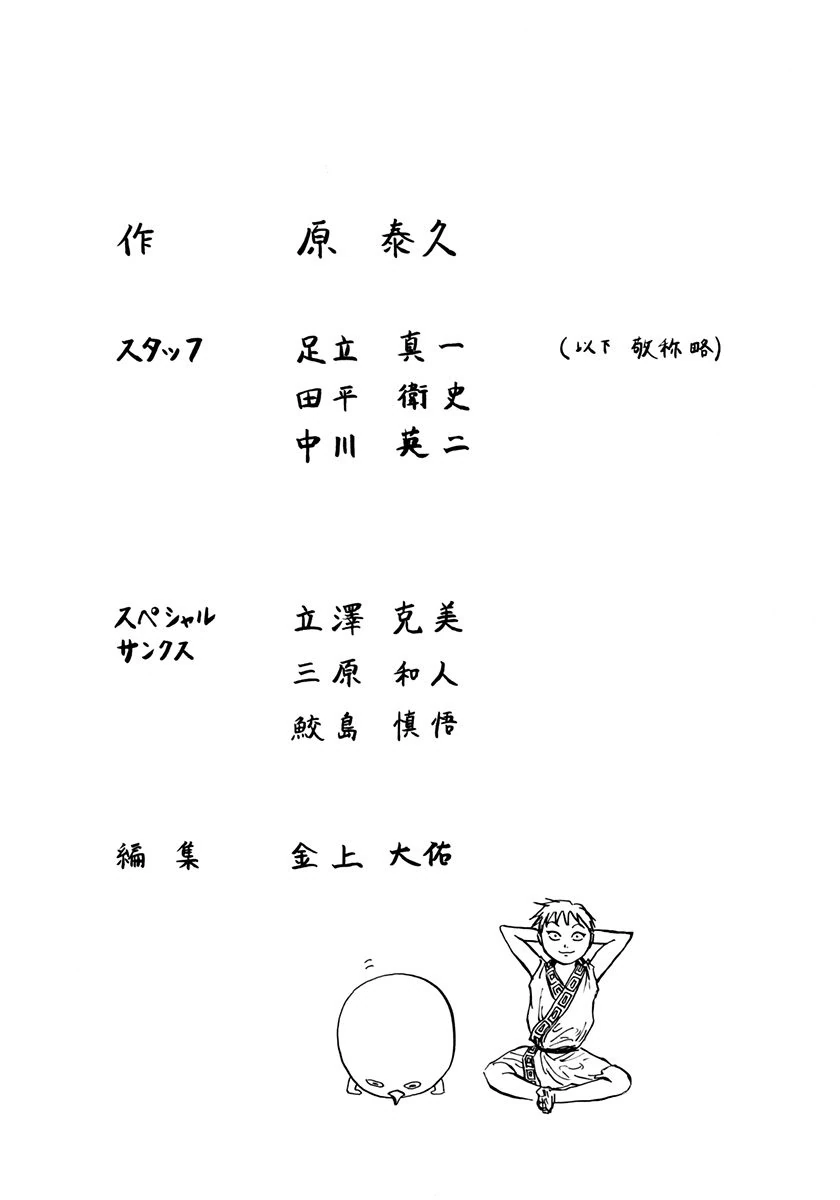 作 原 泰久
スタッフ 足立 真一 (以下 敬称略)
田平 衛史
中川 英二
スペシャル
サンクス 立澤 克美
三原 和人
鮫島 慎悟
編集 金上 大佑